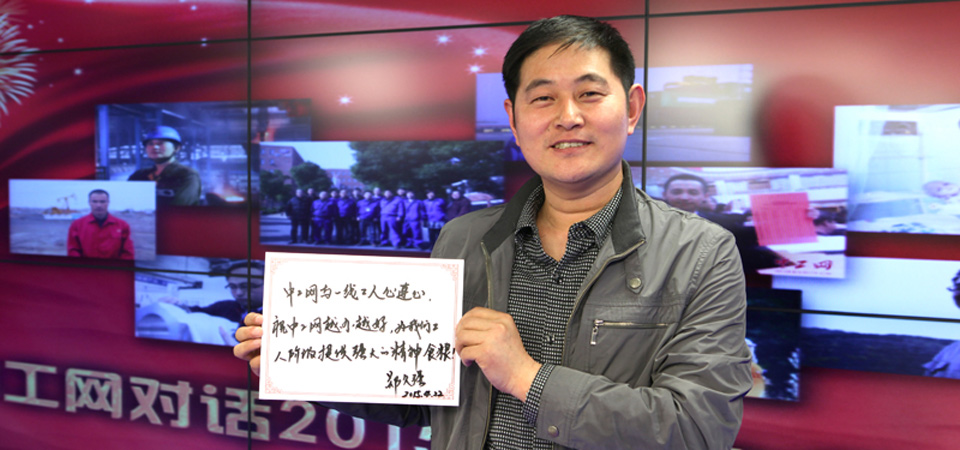 中工网与一线工人心连心，
祝中工网越办越好，为我们工
人阶级提供强大的精神食粮！
郑久强
2015.4.22
工网
工网对话2015